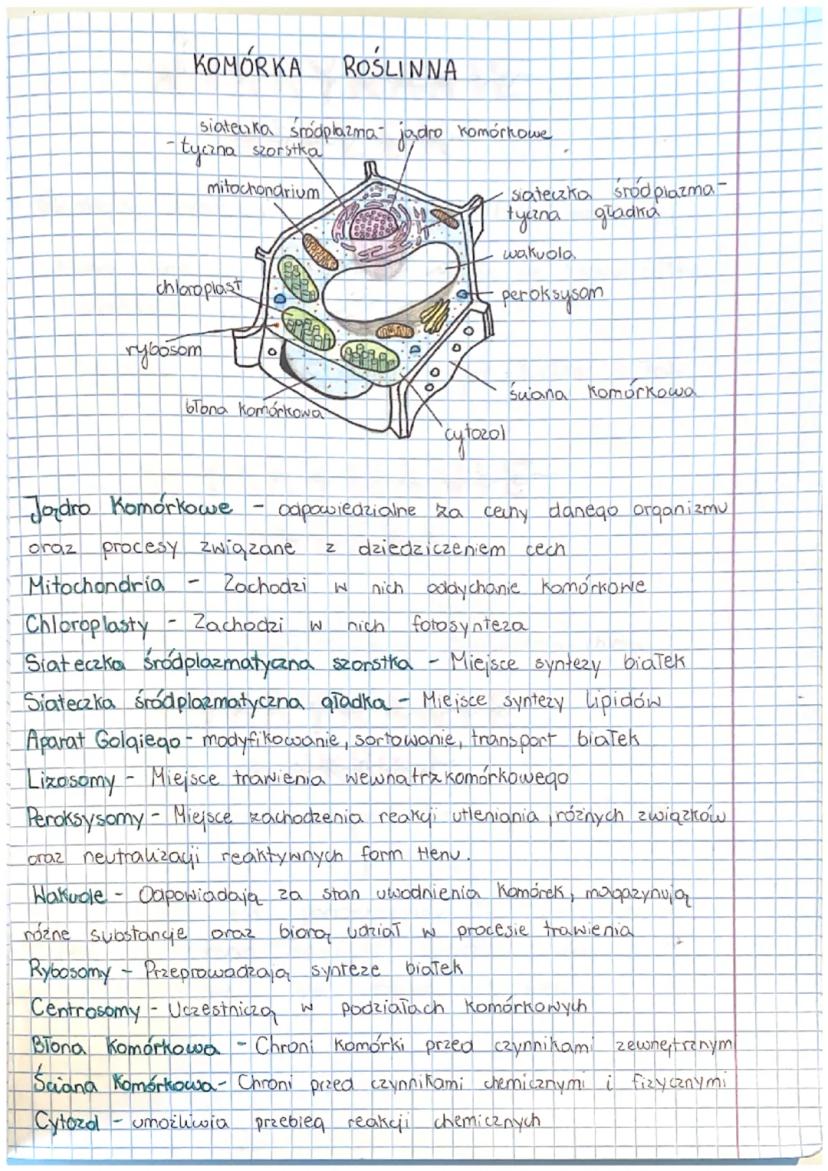 KOMÓRKA ROŚLINNA
siateczka śródplazma-
-tyczna szorstka
jądro komórkowe
mitochondrium
siateczka śródplazma-
tyczna gładka
wakuola
chloroplast
peroksysom
rybosom
ściana komórkowa
błona komórkowa
cytozol
Jądro Komórkowe - odpowiedzialne za cechy danego organizmu
oraz procesy związane z dziedziczeniem cech
Mitochondria - Zachodzi w nich oddychanie komórkowe
Chloroplasty - Zachodzi w nich fotosynteza
Siateczka śródplazmatyczna szorstka - Miejsce syntezy białek
Siateczka śródplazmatyczna gładka - Miejsce syntezy lipidów
Aparat Golgiego - modyfikowanie, sortowanie, transport białek
Lizosomy - Miejsce trawienia wewnątrzkomórkowego
Peroksysomy - Miejsce zachodzenia reakcji utleniania różnych związków
oraz neutralizacji reaktywnych form tlenu.
Wakuole - Odpowiadają za stan uwodnienia komórek, magazynują
różne substancje oraz biorą udział w procesie trawienia
Rybosomy - Przeprowadzają synteze białek
Centrosomy - Uczestniczą w podziałach komórkowych
Błona Komórkowa - Chroni komórki przed czynnikami zewnętrznym
Ściana Komórkowa - Chroni przed czynnikami chemicznymi i fizycznymi
Cytozol - umożliwia przebieg reakcji chemicznych